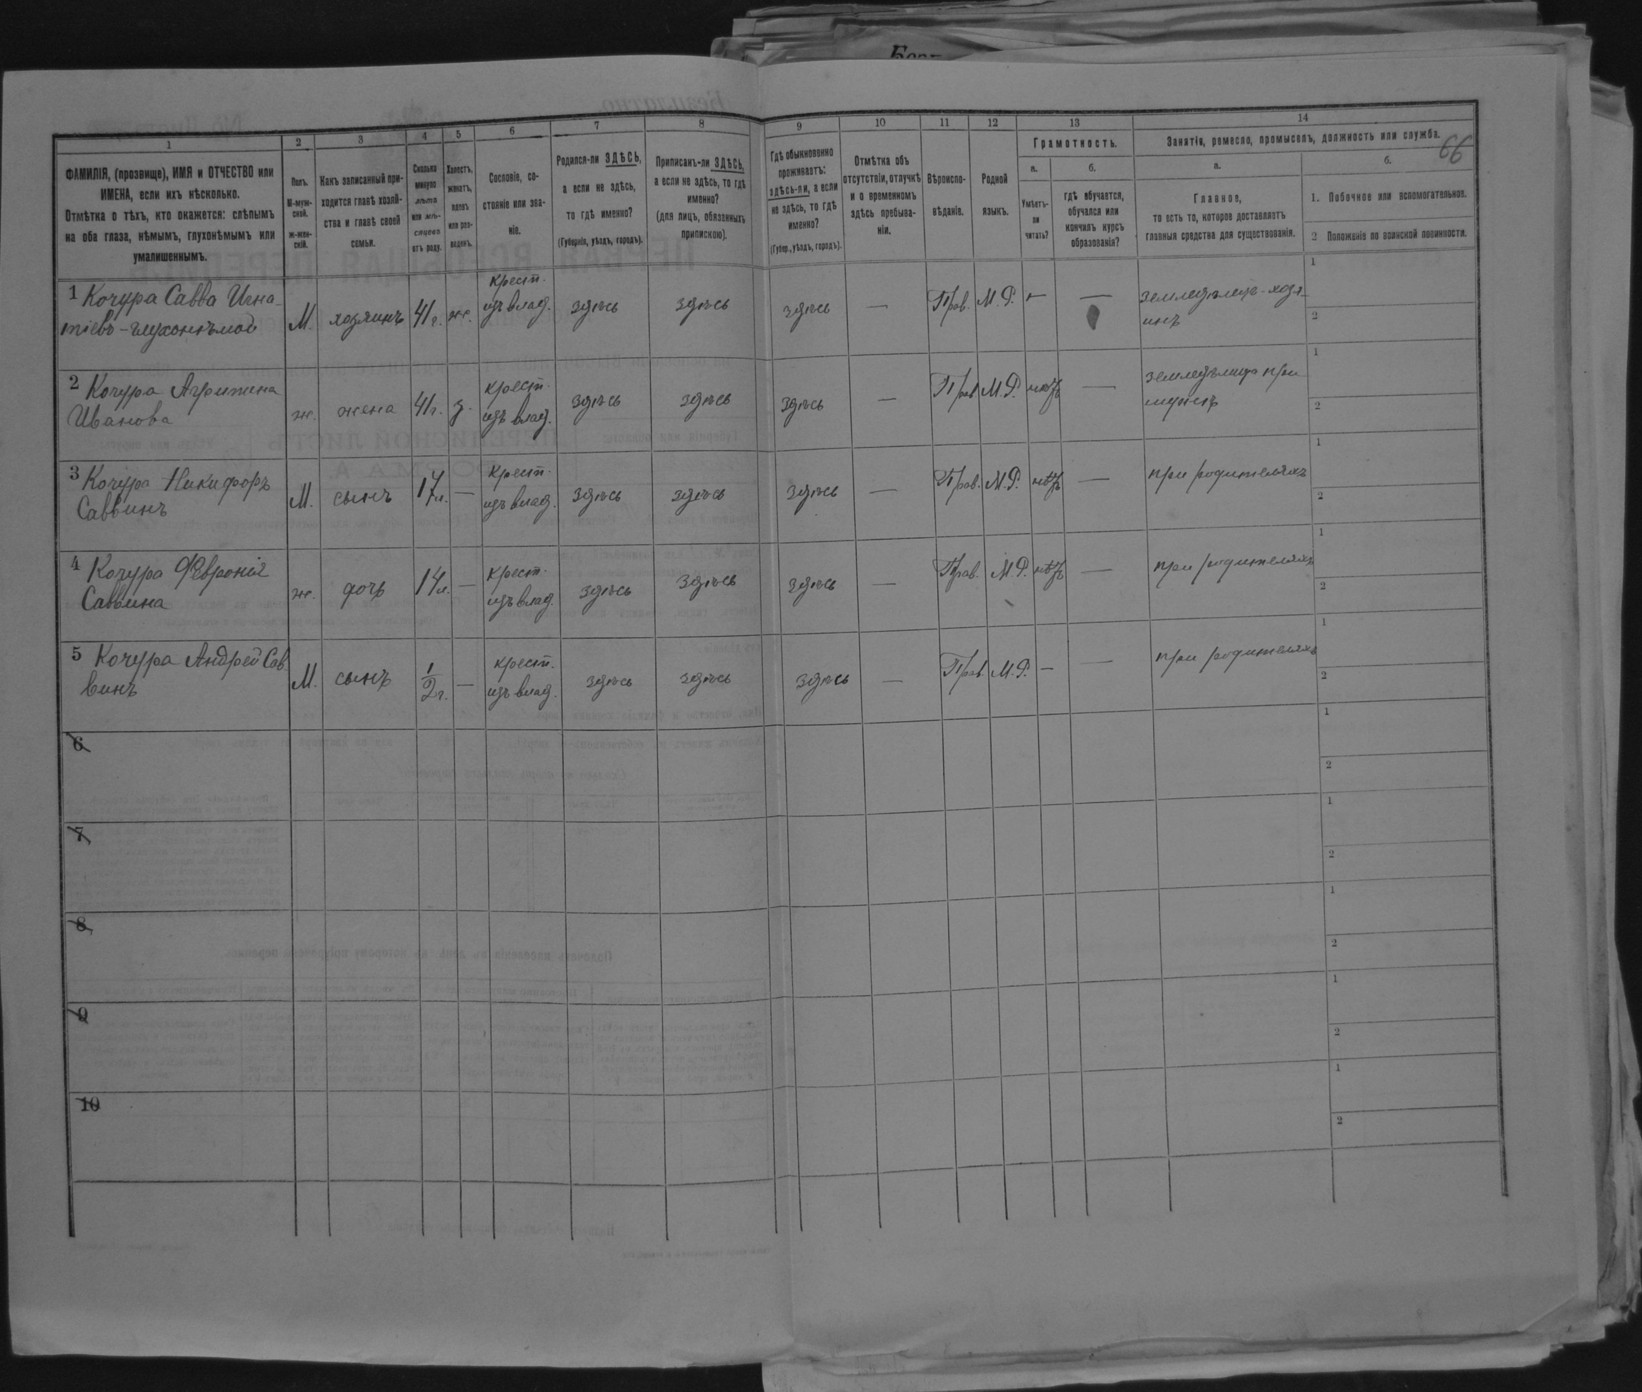 66
1 2 3 4 5 6 7 8 9 10 11 12 13 14
ФАМИЛІЯ, (прозвище), ИМЯ и ОТЧЕСТВО или
ИМЕНА, если ихъ нѣсколько.
Отмѣтка о тѣхъ, кто окажется: слѣпымъ
на оба глаза, нѣмымъ, глухонѣмымъ или
умалишеннымъ.
Полъ.
М-муж-
ской.
ж-жен-
скій.
Какъ записанный при-
ходится главѣ хозяй-
ства и главѣ своей
семьи.
Сколько
минуло
лѣтъ
или мѣ-
сяцевъ
отъ роду.
Холостъ,
женатъ,
вдовъ
или раз-
веденъ.
Сословіе, со-
стояніе или зва-
ніе.
Родился-ли ЗДѢСЬ,
а если не здѣсь,
то гдѣ именно?
(Губернія, уѣздъ, городъ).
Приписанъ-ли ЗДѢСЬ,
а если не здѣсь, то гдѣ
именно?
(для лицъ, обязанныхъ
припискою).
Гдѣ обыкновенно
проживаетъ:
здѣсь-ли, а если
не здѣсь, то гдѣ
именно?
(Губер., уѣздъ, городъ).
Отмѣтка объ
отсутствіи, отлучкѣ
и о временномъ
здѣсь пребыва-
ніи.
Вѣроиспо-
вѣданіе.
Родной
языкъ.
Грамотность.
а.
Умѣетъ-
ли
читать?
б.
гдѣ обучается,
обучался или
кончилъ курсъ
образованія?
Занятіе, ремесло, промыселъ, должность или служба.
а.
Главное,
то есть то, которое доставляетъ
главныя средства для существованія.
б.
1. Побочное или вспомогательное.
2 Положеніе по воинской повинности.
1 Кочура Савва Игна-
тіевъ - глухонѣмой
М. хозяинъ 41 г. ж. крест.
изъ влад. здѣсь здѣсь здѣсь — Прав. М.Р. — — земледѣлецъ-хозя-
инъ
1
2
2 Кочура Агрипина
Иванова
ж. жена 41 г. з. крест.
изъ влад. здѣсь здѣсь здѣсь — Прав М.Р. нѣтъ — земледѣлица при
мужѣ
1
2
3 Кочура Никифоръ
Саввинъ
М. сынъ 17 л. — крест.
изъ влад. здѣсь здѣсь здѣсь — Прав. М.Р. нѣтъ — при родителяхъ
1
2
4 Кочура Февронія
Саввина
ж. дочь 14 л. — крест.
изъ влад. здѣсь здѣсь здѣсь — Прав. М.Р. нѣтъ — при родителяхъ
1
2
5 Кочура Андрей Сав
винъ
М. сынъ 1/2 г. — крест.
изъ влад. здѣсь здѣсь здѣсь — Прав М.Р. — — при родителяхъ
1
2
6
1
2
7
1
2
8
1
2
9
1
2
10
1
2